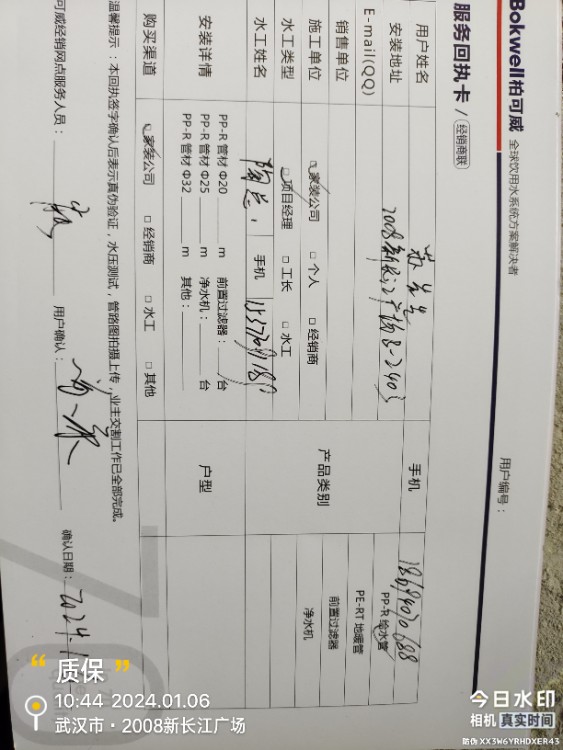 Bokwell柏可威 全球饮用水系统方案解决者
服务回执卡 / 经销商联
用户编号：
用户姓名
手机
安装地址 2008新长江广场8-2403
E-mail(QQ)
销售单位
产品类别
PP-R 给水管
PE-RT 地暖管
前置过滤器
净水机
施工单位 □家装公司 □个人 □经销商
水工类型 □项目经理 □工长 □水工
水工姓名
手机
安装详情
PP-R 管材 Φ20 m 前置过滤器： 台
PP-R 管材 Φ25 m 净水机： 台
PP-R 管材 Φ32 m 其他：
户型
购买渠道 □家装公司 □经销商 □水工 □其他
温馨提示：本回执签字确认后表示真伪验证，水压测试，管路图拍摄上传，业主交割工作已全部完成。
可威经销网点服务人员：
用户确认：
确认日期： 2024.1
“质保”
10:44 2024.01.06
武汉市·2008新长江广场
今日水印
相机 真实时间
防伪 XX3W6YRHDXER43